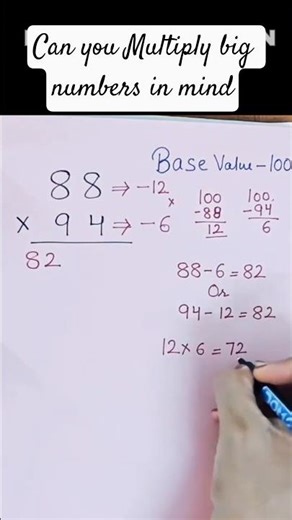 Can you Multiply big
numbers in mind
Base Value - 100
88 → -12
× 94 → -6
82
×
100
-88
12
100
-94
6
88-6=82
Or
94-12=82
12×6=72